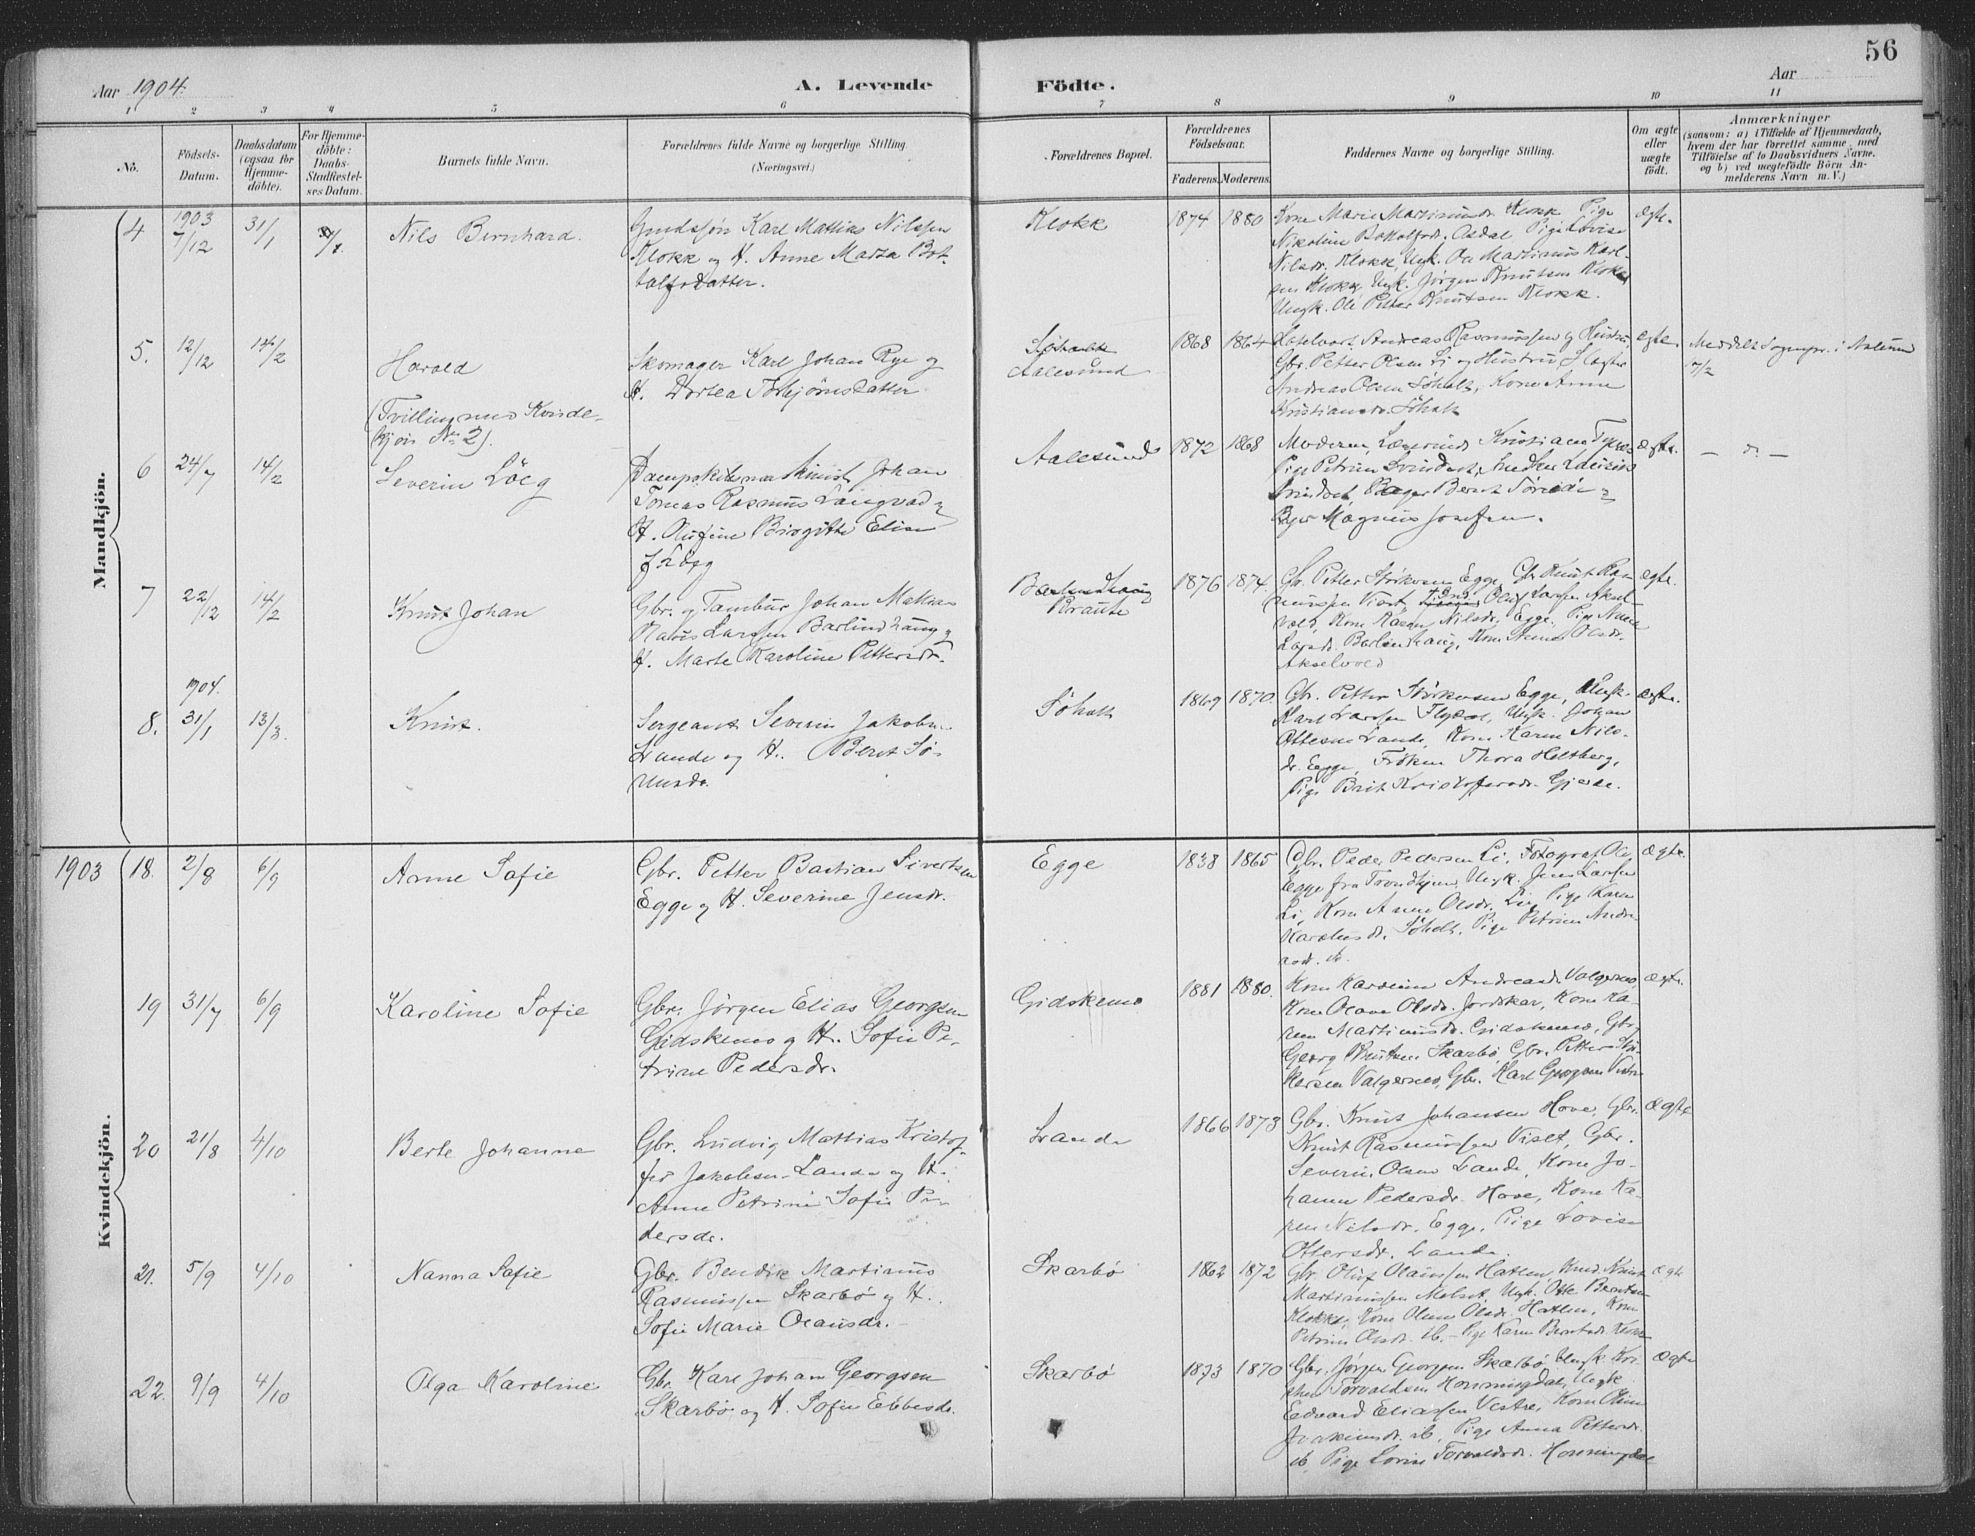 56
Aar 1904.
A. Levende Födte.
Aar
1 2 3 4 5 6 7 8 9 10 11
No.
Födsels-Datum.
Daabsdatum (ogsaa for Hjemmedöbte).
For Hjemmedöbte: Daabs-Stadfæstelses Datum.
Barnets fulde Navn.
Forældrenes fulde Navne og borgerlige Stilling. (Næringsvei.)
Forældrenes Bopæl.
Forældrenes Födselsaar.
Faderens. Moderens.
Faddernes Navne og borgerlige Stilling.
Om ægte eller uægte födt.
Anmærkninger
(saasom: a) i Tilfælde af Hjemmedaab,
hvem der har forrettet samme, med
Tilföielse af to Daabsvidners Navne.
og b) ved uægtefödte Börn An-
melderens Navn m. V.)
Mandkjön.
4 1903 7/12 31/1
Nils Bernhard.
Gmdssøn Karl Mathias Nilssen
Klokk og H. Anne Marta Bot-
talfsdatter.
Klokk
1874 1880
Kone Marie Martinusdr. Klokk, Pige
Nikoline Botolfsdr. Osdal, Pige Lovise
Nilsdr. Klokk, Ungk. Ola Martinius Karl-
sen Klokk, Ungk. Jørgen Knutsen Klokk
Ungk. Ole Petter Knutsen Klokk.
ægte.
5. 12/12 14/2
Harald
(Tvilling med Kvinde-
kjön No 2).
Skomager Karl Johan Rye og
H. Dortea Torbjørnsdatter
Søholt
Aalesund
1868 1864
Andreas Rasmussen og Hustru,
Gbr. Petter Olsen Li og Hustru,
Andreas Olsen Søholt, Kone Anne
Kristiansdr. Søholt
ægte.
Meddelt Sognepr. i Aalesund
17/2
6 24/7 14/2
Severin Löeg
Dampskibsmaskinist Johan
Tomas Rasmus Langvad og
H. Olufine Birgitte Elise
f. Löeg
Aalesund
1872 1868
Moderen, Kristiane
Pige Petrine
Bager Bernt
Magnus Josefsen.
ægte.
— d. —
7 22/12 14/2
Knut Johan
Gbr. og Tambur Johan Mathias
Larssen Barlindhaug og
H. Marte Karoline Pettersdr.
Barlindhaug
1876 1874.
Gbr. Petter Størkersen Egge, Gbr. Knut Ras-
mussen Viset, Oluf Larsen Aksel-
vold, Kone Karen Nilsdr. Egge, Pige Anne
Larsdr. Barlindhaug, Kone Olsdr.
Akselvold
ægte.
1904.
8. 31/1 13/3.
Knut.
Sergeant Severin Jakobsen
Lande og H. Beret Sø-
rensdr.
Søholt
1869 1870.
Gbr. Petter Størkersen Egge, Ungk.
Karl Larssen Flydal, Ungk. Johan
Ottesen Lande, Kone Karen Nils-
dr. Egge, Frøken Thora Holtberg,
Pige Brit Kristoffersdr. Gjerde.
ægte.
1903
Kvindekjön.
18. 2/8 6/9
Anne Sofie
Gbr. Petter Bastian Sivertsen
Egge og H. Severine Jensdr.
Egge
1838 1865
Gbr. Peder Pedersen Li, Fotograf Ole
Egge fra Trondhjem, Ungk. Jens Larsen
Li, Kone Anne Olsdr. Li, Pige Karen
Karolusdr. Søholt, Pige Petrine Andre-
asdr. ib.
ægte.
19 31/7 6/9
Karoline Sofie
Gbr. Jørgen Elias Georgsen
Gidskemo og H. Sofie Pe-
trine Pedersdr.
Gidskemo
1881 1880.
Kone Karoline Andreasdr. Valgermo,
Kone Olave Olsdr. Jordskar, Kone Ka-
ren Martinusdr. Gidskemo, Gbr.
Georg Knutsen Skarbø, Gbr. Petter Stør-
kersen Valgermo, Gbr. Karl Georgsen Vestre
ægte.
20 21/8 4/10
Berte Johanne
Gbr. Ludvig Mathias Kristof-
fer Jakobsen Lande og H.
Anne Petrine Sofie Pe-
dersdr.
Lande
1866 1873
Gbr. Knut Johansen Hove, Gbr.
Knut Rasmussen Viset, Gbr.
Severin Olsen Lande, Kone Jo-
hanne Pedersdr. Hove, Kone Ka-
ren Nilsdr. Egge, Pige Lovise
Ottersdr. Lande.
ægte
21. 5/9 4/10
Nanna Sofie
Gbr. Bendik Martinus
Rasmussen Skarbø og H.
Sofie Marie Olausdr.
Skarbø
1862 1872
Gbr. Oluf Olaussen Hatlen, Knut
Martinussen Melset, Ungk. Otte Berntsen
Klokk, Kone Oline Olsdr. Hatlen, Kone
Petrine Olsdr. ib. – Pige Karen Berntsdr. Klokk
ægte
22. 9/9 4/10
Olga Karoline
Gbr. Karl Johan Georgsen
Skarbø og H. Sofie Ebbesdr.
Skarbø
1873 1870
Gbr. Jørgen Georgsen Skarbø, Ungk. Kri-
sten Torvaldsen Honningdal, Ungk.
Edvard Eliassen Vestre, Kone Oline
Joakimsdr. ib, Pige Anna Pettersdr.
ib, Pige Lovise Torvaldsdr. Honningdal
ægte